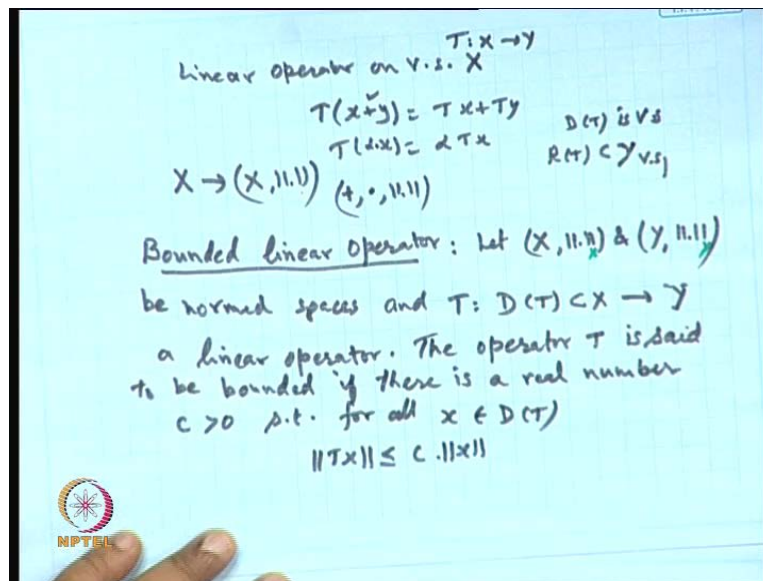 T: X → Y
Linear operator on v.s. X
T(x+y) = Tx + Ty
T(α.x) = α Tx
D(T) is V.S
R(T) ⊂ Y v.s,
X → (X, ||.||) (+, ·, ||.||)
Bounded linear operator : Let (X, ||.||x) & (Y, ||.||y)
be normed spaces and T: D(T) ⊂ X → Y
a linear operator. The operator T is said
to be bounded if there is a real number
c > 0 s.t. for all x ∈ D(T)
||Tx|| ≤ c . ||x||
NPTEL